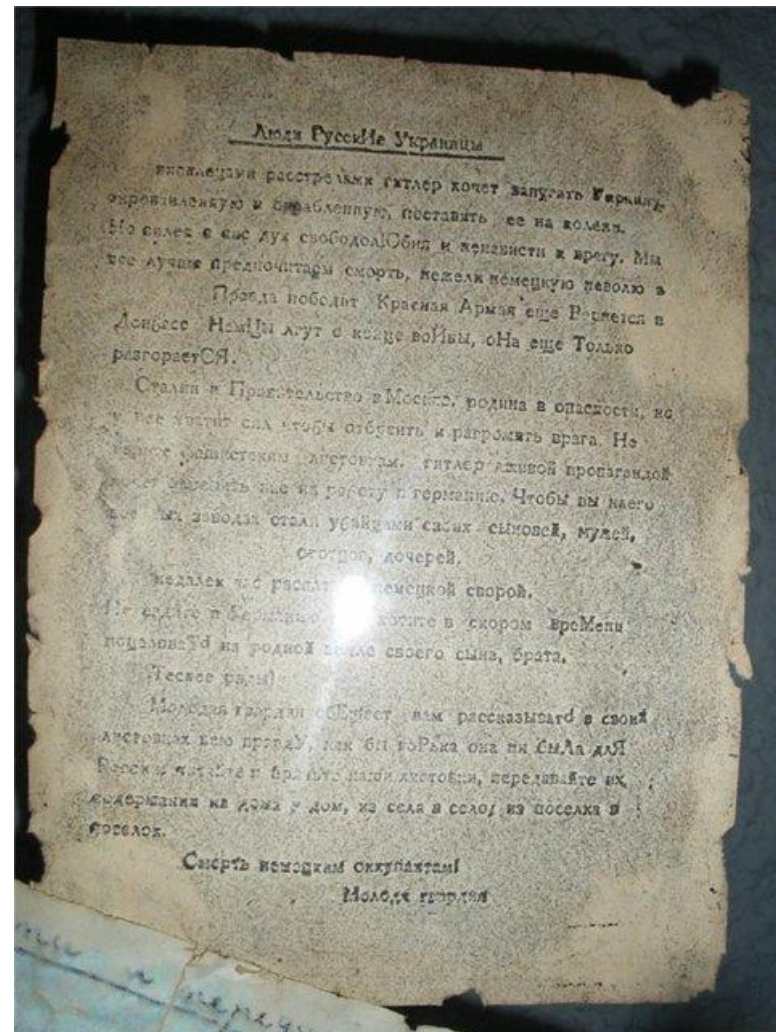 Люди РусскИе Украинцы
расстрелами гитлер хочет запугать Украину,
окровавленную и ограбленную, поставить ее на колени.
Но велек в нас дух свободолЮбия и ненависти к врагу. Мы
все лучше предпочитаем смерть, нежели немецкую неволю
Правда победит Красная Армия еще Вернется в
Донбасс НемЦы лгут о конце воЙны, оНа еще Только
разгораетСЯ.
Сталин и Правительство в Москве, родина в опасности, но
у нее хватит сил чтобы отбросить и разгромить врага. Не
верьте фашистским листовкам. гитлер лживой пропагандой
хочет вас на работу в германию. Чтобы вы на его
заводах стали убийцами своих сыновей, мужей,
отцов, дочерей.
недалек час расплаты немецкой сворой.
Не в хотите в скором вреМени
поцеловать на родной земле своего сына, брата.
Теснее ряды!
Молодая гвардия вам рассказывать в своих
листовках всю правдУ, как бы гоРька она ни быЛа длЯ
России читайте и наши листовки, передавайте их
содержание из дома в дом, из села в село, из поселка в
поселок.
Смерть немецким оккупантам!
Молодя гвардия